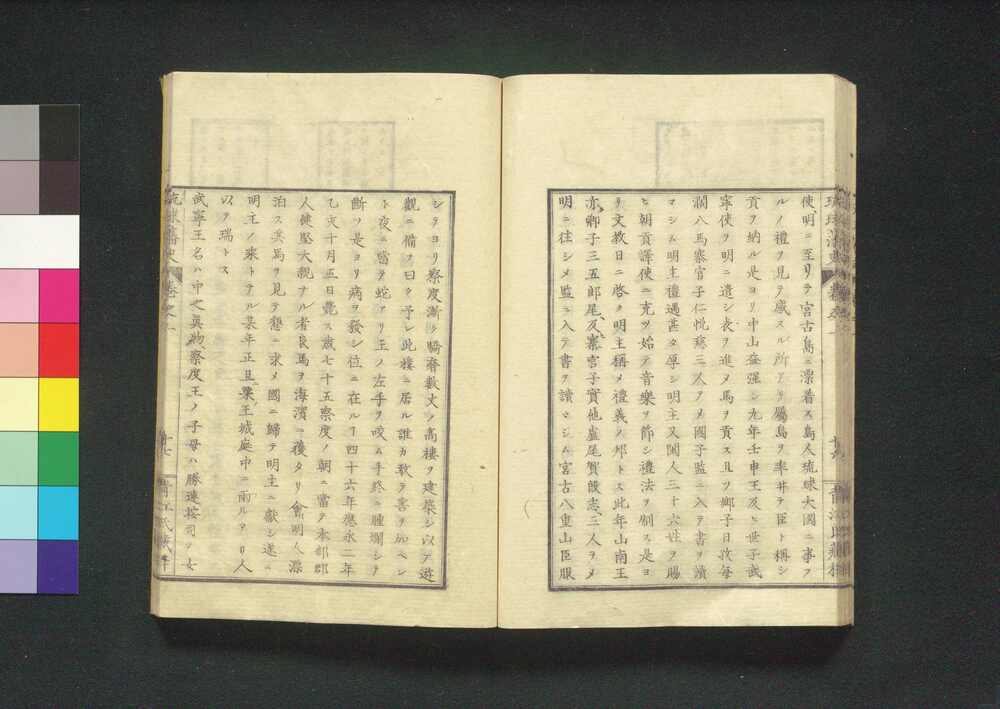 使明ニ至リテ宮古島ニ漂着ス島人琉球大國ニ事フ
ルノ禮ヲ見テ感スル所アリ屬島ヲ率井テ臣ト稱シ
貢ヲ納ル是ヨリ中山益強シ九年壬申王及ヒ世子武
寧使ヲ明ニ遣シ表ヲ進メ馬ヲ貢ス且ツ郷子日孜每
濶八馬寨官子仁悅慈三人ヲメ國子監ニ入テ書ヲ讀
マシム明主禮遇甚タ厚シ明主又閩人三十六姓ヲ賜
ヒ朝貢譯使ニ充ツ始テ音樂ヲ節シ禮法ヲ制ス是ヨ
リ文教日ニ啓ク明主稱メ禮義ノ邦トス此年山南王
亦卿子三五郎尾及寨官子實他盧尾賀叚志三人ヲメ
明ニ往シメ監ニ入テ書ヲ讀マシム宮古八重山臣服
シテヨリ察度漸ク驕奢數丈ノ高樓ヲ建築シ以テ遊
觀ニ備フ曰ク予レ此樓ニ居ル誰カ敢テ害ヲ加ヘン
ト夜ニ當テ蛇アリ王ノ左手ヲ咬ム手終ニ腫爛シテ
斷ツ是ヨリ病ヲ發シ位ニ在ルヿ四十六年應永二年
乙亥十月五日薨ス歲七十五察度ノ朝ニ當テ本部郡
人健堅大親ナル者良馬ヲ海濱ニ獲タリ會明人漂
泊ス其馬ヲ見テ懇ニ求メ國ニ歸テ明主ニ獻シ遂ニ
明主ノ乘トナル某年正旦粟王城庭中ニ雨ルアリ人
以テ瑞トス
武寧王名ハ中之眞物察度王ノ子母ハ勝連按司ノ女
琉球藩史 卷之一
十七